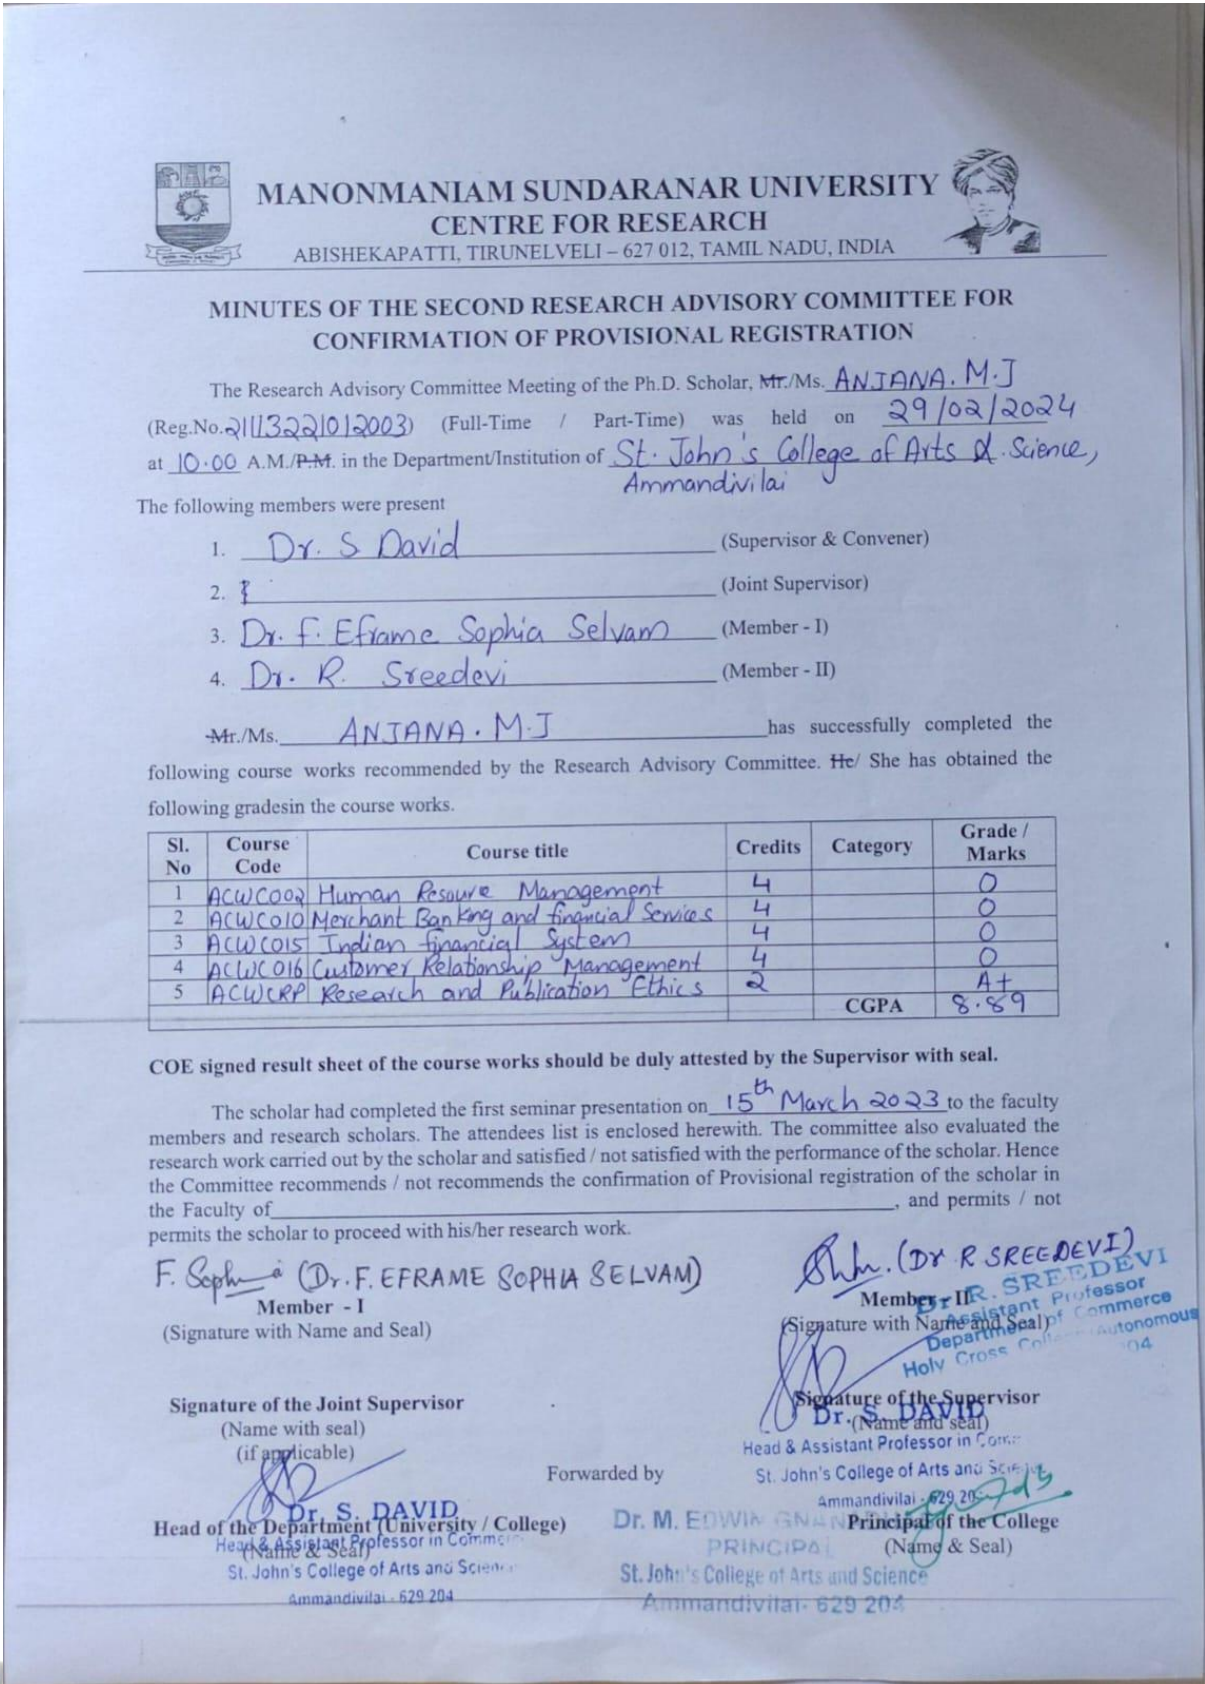 MANONMANIAM SUNDARANAR UNIVERSITY
CENTRE FOR RESEARCH
ABISHEKAPATTI, TIRUNELVELI – 627 012, TAMIL NADU, INDIA
MINUTES OF THE SECOND RESEARCH ADVISORY COMMITTEE FOR
CONFIRMATION OF PROVISIONAL REGISTRATION
The Research Advisory Committee Meeting of the Ph.D. Scholar, Mr./Ms. ANJANA. M.J
(Reg.No.21113221012003) (Full-Time / Part-Time) was held on 29/02/2024
at 10.00 A.M./P.M. in the Department/Institution of St. John's College of Arts & Science,
Ammandivilai
The following members were present
1. Dr. S David (Supervisor & Convener)
2. (Joint Supervisor)
3. Dr. F. Eframe Sophia Selvam (Member - I)
4. Dr. R. Sreedevi (Member - II)
Mr./Ms. ANJANA. M.J has successfully completed the
following course works recommended by the Research Advisory Committee. He/ She has obtained the
following gradesin the course works.
Sl. No Course Code Course title Credits Category Grade / Marks
1 ACWC002 Human Resoure Management 4 O
2 ACWC010 Merchant Banking and financial Services 4 O
3 ACWC015 Indian financial System 4 O
4 ACWC016 Customer Relationship Management 4 O
5 ACWCRP Research and Publication Ethics 2 A+
CGPA 8.89
COE signed result sheet of the course works should be duly attested by the Supervisor with seal.
The scholar had completed the first seminar presentation on 15th March 2023 to the faculty
members and research scholars. The attendees list is enclosed herewith. The committee also evaluated the
research work carried out by the scholar and satisfied / not satisfied with the performance of the scholar. Hence
the Committee recommends / not recommends the confirmation of Provisional registration of the scholar in
the Faculty of , and permits / not
permits the scholar to proceed with his/her research work.
F. Sophia (Dr. F. EFRAME SOPHIA SELVAM)
Member - I
(Signature with Name and Seal)
(Dr R SREEDEVI)
Member - II
(Signature with Name and Seal)
Dr R. SREEDEVI
Assistant Professor
Department of Commerce
Holy Cross Autonomous
Signature of the Joint Supervisor
(Name with seal)
(if applicable)
Signature of the Supervisor
(Name and seal)
Dr. S. DAVID
Head & Assistant Professor in
St. John's College of Arts and
Ammandivilai - 629 20
Forwarded by
Dr. S. DAVID
Head of the Department (University / College)
(Name & Seal)
Head & Assistant Professor in
St. John's College of Arts and
Ammandivilai - 629 204
Principal of the College
(Name & Seal)
Dr. M. EDWIN
PRINCIPAL
St. John's College of Arts and Science
Ammandivilai- 629 204